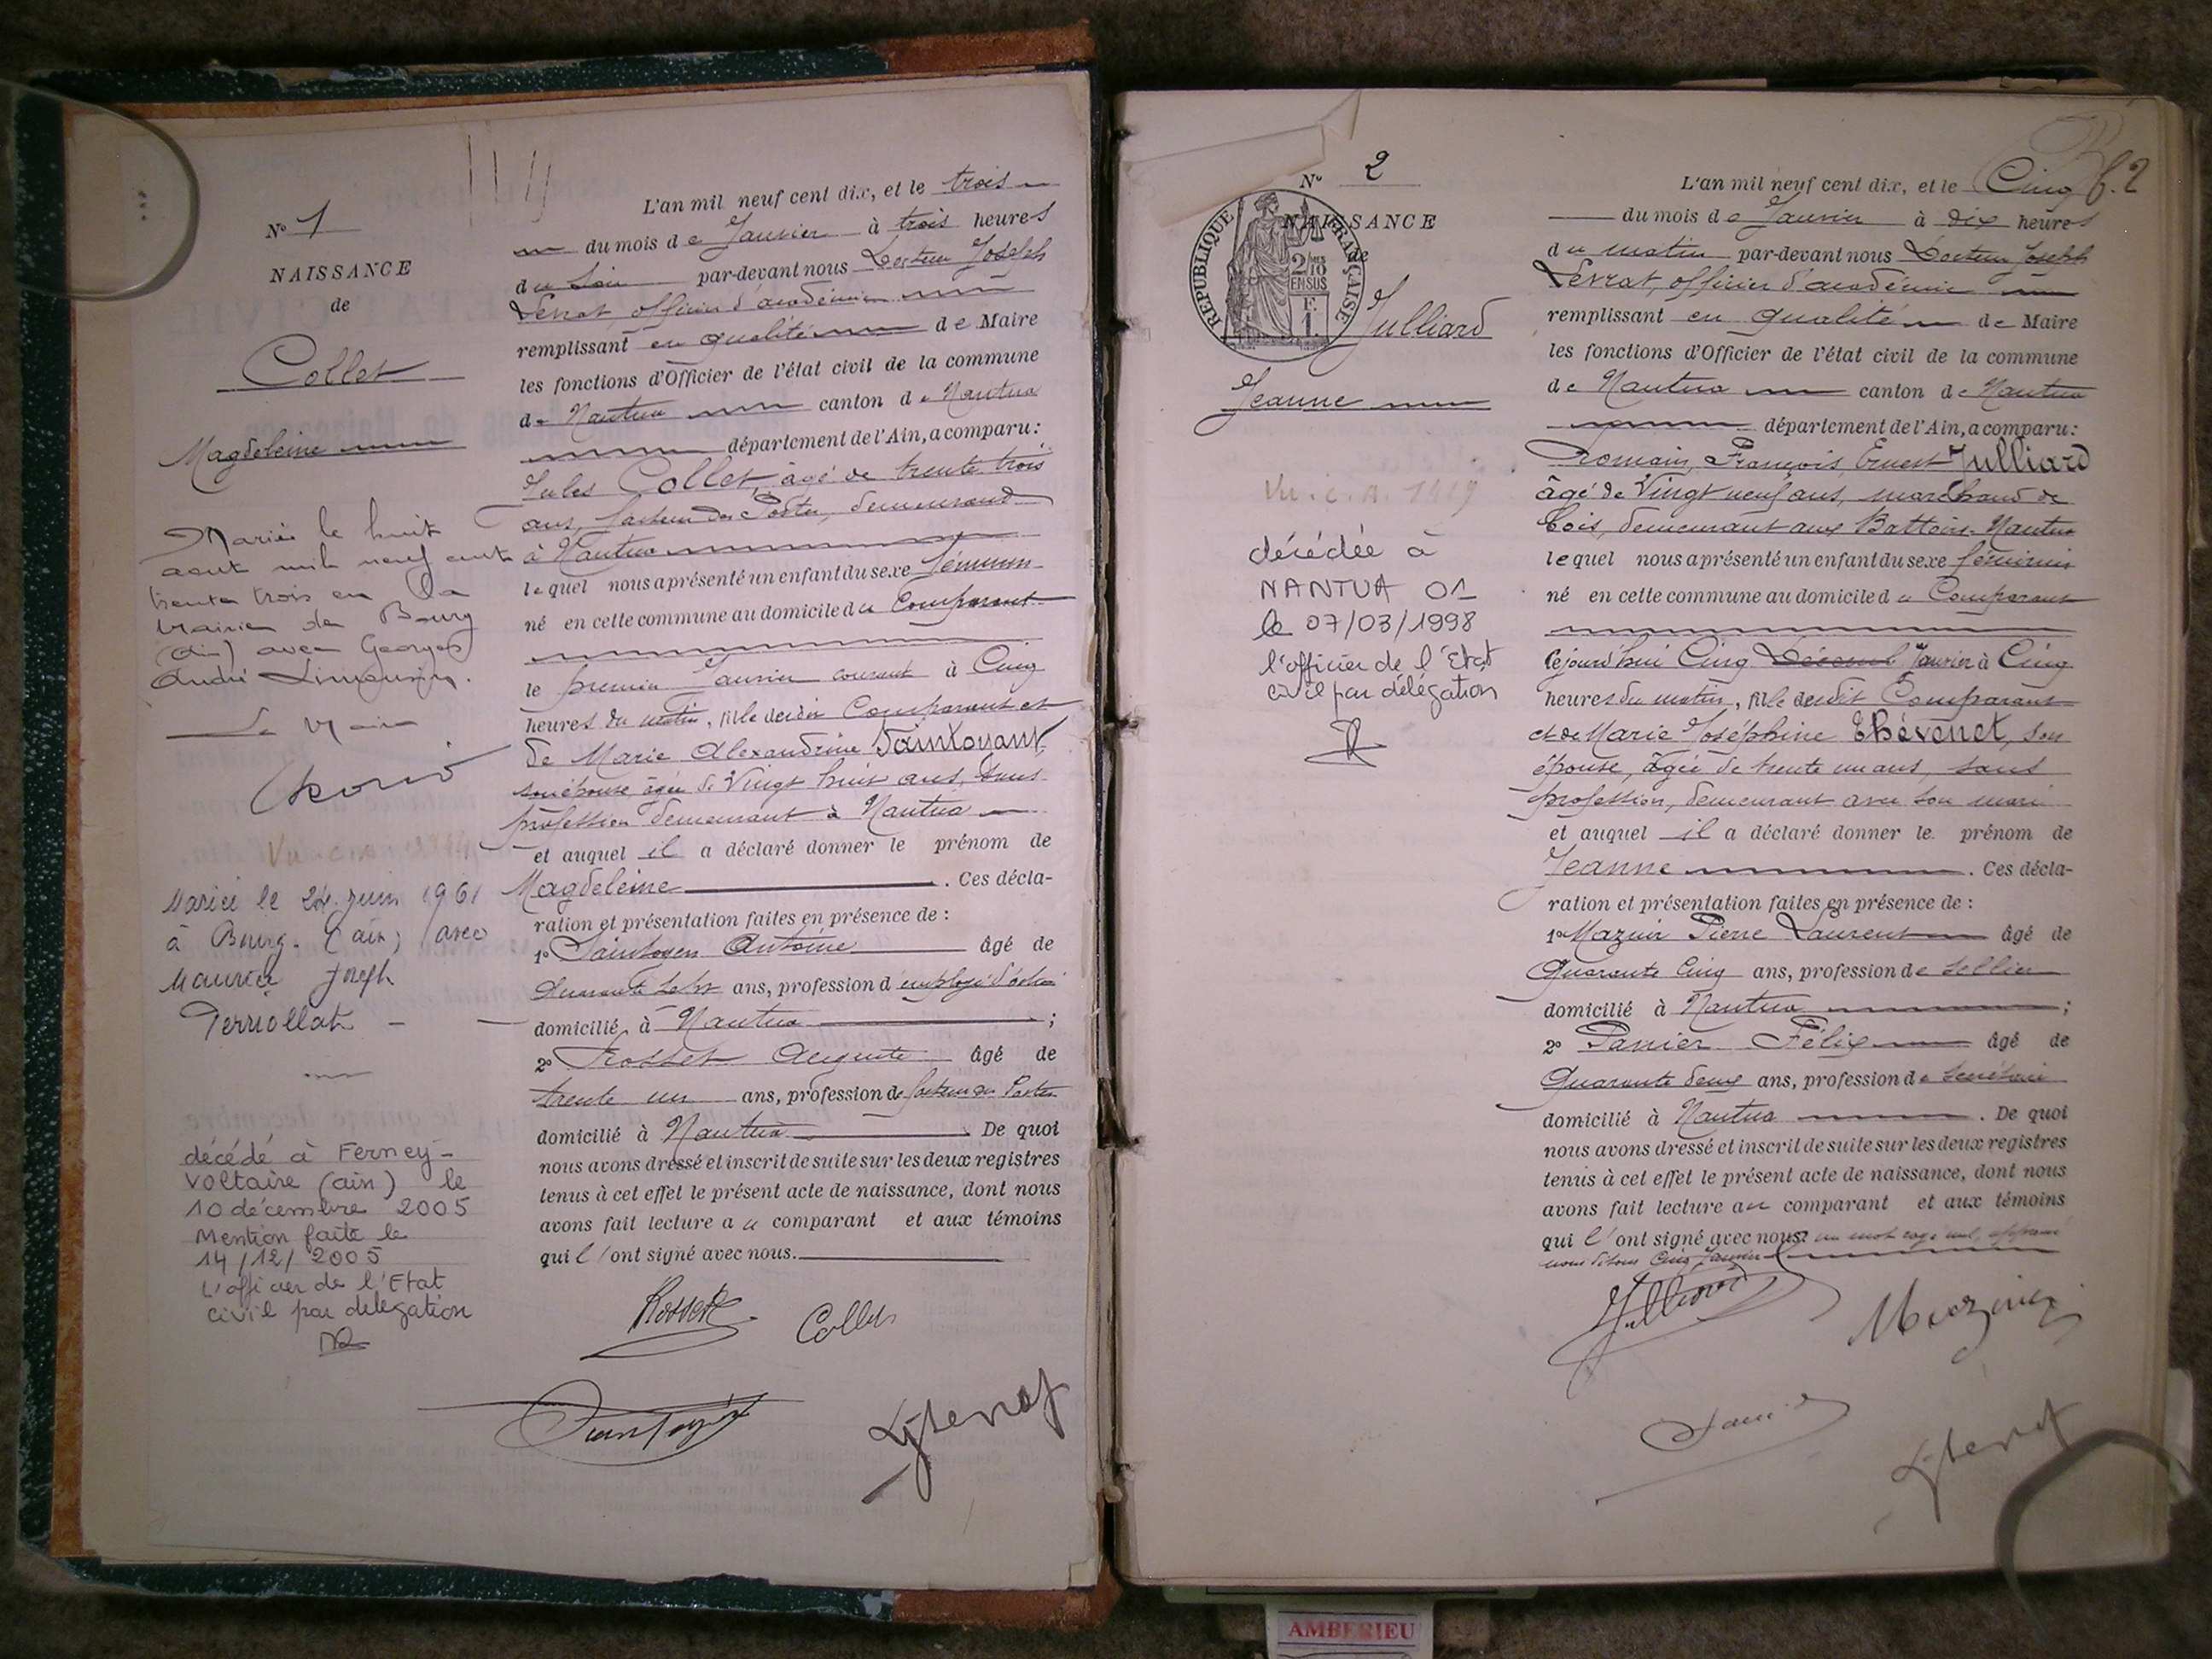 Nº 1
NAISSANCE
de
Collet
Magdeleine
Mariée le huit
août mil neuf cent
trente trois en la
Mairie de Bourg
(Ain) avec Georges
André
Le Maire
Mariée le 24 juin 1961
à Bourg (ain) avec
Maurice Joseph
Perriollat
décédé à Ferney-
Voltaire (ain) le
10 décembre 2005
Mention faite le
14/12/2005
L'officier de l'Etat
civil par délégation
L'an mil neuf cent dix, et le trois
du mois de Janvier à trois heures
du soir par-devant nous Docteur Joseph
Levrat, officier d'académie
remplissant en qualité de Maire
les fonctions d'Officier de l'état civil de la commune
de Nantua canton de Nantua
département de l'Ain, a comparu:
Jules Collet, âgé de trente trois
ans, facteur des Postes, demeurant
à Nantua
lequel nous a présenté un enfant du sexe féminin
né en cette commune au domicile du Comparant
le premier Janvier courant à Cinq
heures du matin, fille dudit Comparant et
de Marie Alexandrine Saintoyant,
son épouse âgée de Vingt huit ans, sans
profession demeurant à Nantua
et auquel il a déclaré donner le prénom de
Magdeleine. Ces décla-
ration et présentation faites en présence de :
1º Saintoyen Antoine âgé de
Quarante sept ans, profession d'employé d'octroi
domicilié à Nantua ;
2º Rosset Auguste âgé de
trente un ans, profession de facteur des Postes
domicilié à Nantua De quoi
nous avons dressé et inscrit de suite sur les deux registres
tenus à cet effet le présent acte de naissance, dont nous
avons fait lecture au comparant et aux témoins
qui l'ont signé avec nous.
Rosset Collet
Nº 2
NAISSANCE
de
REPUBLIQUE FRANÇAISE
2/10
EN SUS
F.
1.
Julliard
Jeanne
Vu. c. a. 1919
décédée à
NANTUA 01
le 07/03/1998
l'officier de l'Etat
civil par délégation
f. 2
L'an mil neuf cent dix, et le Cinq
du mois de Janvier à dix heures
du matin par-devant nous Docteur Joseph
Levrat, officier d'académie
remplissant en qualité de Maire
les fonctions d'Officier de l'état civil de la commune
de Nantua canton de Nantua
département de l'Ain, a comparu:
Romain, François Ernest Julliard
âgé de Vingt neuf ans, marchand de
bois, demeurant aux Battoirs-Nantua
lequel nous a présenté un enfant du sexe féminin
né en cette commune au domicile du Comparant
cejourd'hui Cinq Janvier à Cinq
heures du matin, fille dudit Comparant
et de Marie Joséphine Thévenet, son
épouse, âgée de trente un ans, sans
profession, demeurant avec son mari
et auquel il a déclaré donner le prénom de
Jeanne. Ces décla-
ration et présentation faites en présence de :
1º Mazuir Pierre Laurent âgé de
Quarante Cinq ans, profession de sellier
domicilié à Nantua ;
2º Panier Félix âgé de
Quarante deux ans, profession de Secrétaire
domicilié à Nantua. De quoi
nous avons dressé et inscrit de suite sur les deux registres
tenus à cet effet le présent acte de naissance, dont nous
avons fait lecture au comparant et aux témoins
qui l'ont signé avec nous. un mot rayé nul, approuvé
nous disons Cinq Janvier
Julliard
AMBERIEU